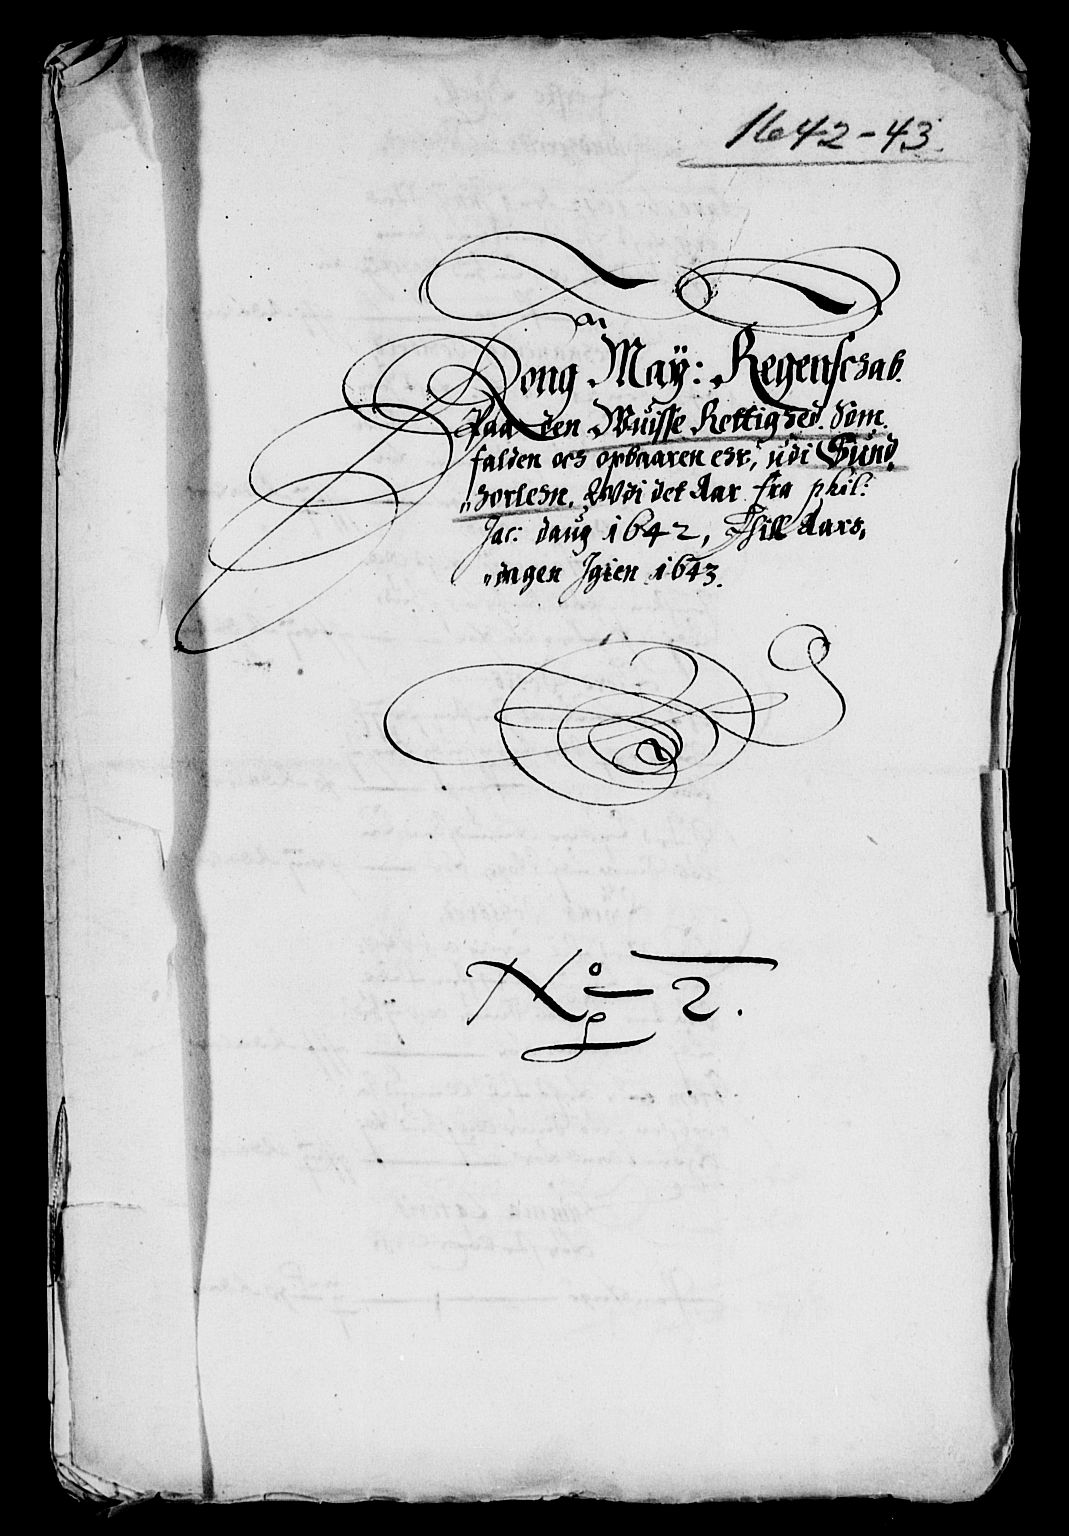 1642-43.
Kong May: Regenschab.
Paa den Wuisse Rettighed. som.
falden och opbaaren ehr, udi Sund,
„horlehn. Udi det Aar fra phil:
Jac: daug 1642, Thill Aars,
„dagen Igien 1643.
No 2.